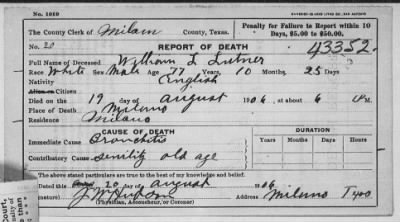 No. 1010
The County Clerk of Milam County, Texas.
Penalty for Failure to Report within 10 Days, $5.00 to $50.00.
No. 20
REPORT OF DEATH
43352
Full Name of Deceased William L Lutner
Race White Sex Male Age 77 Years, 10 Months, 25 Days
Nativity English
Citizen
Died on the 19 day of August 1906, at about 6 M.
Place of Death Milano
Residence Milano
CAUSE OF DEATH
DURATION
Immediate Cause Bronchitis
Years Months Days Hours
Contributory Cause senility old age
Years Months Days Hours
The above stated particulars are true to the best of my knowledge and belief.
Dated 20 day of August 1906
(Signature)
Address Milano Texas
(Physician, Accoucheur, or Coroner)